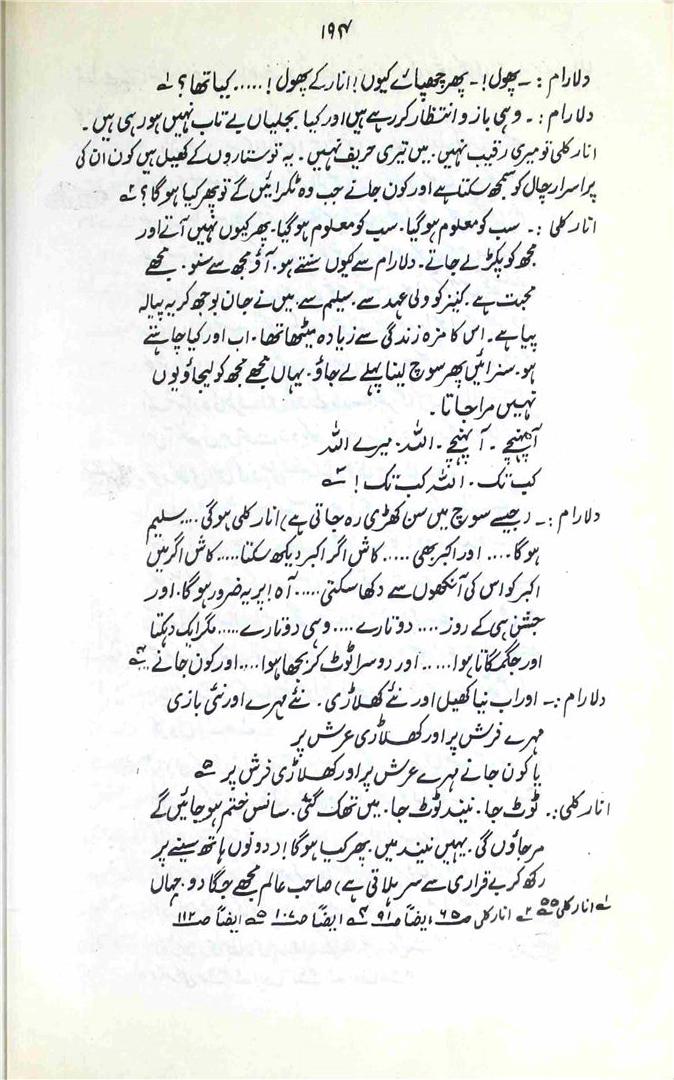 ۱۹۴
دلارام :۔ پھول!۔ پھر چھپائے کیوں! انار کے پھول! ..... کیا تھا؟ ۱؎
دلارام :۔ وہی بازو انتظار کر رہے ہیں اور کیا بجلیاں بے تاب نہیں ہو رہی ہیں۔
انارکلی تو میری رقیب نہیں۔ میں تیری حریف نہیں۔ یہ تو ستاروں کے کھیل ہیں کون ان کی
پراسرار چال کو سمجھ سکتا ہے اور کون جانے جب وہ ٹکرائیں گے تو پھر کیا ہوگا؟ ۲؎
انارکلی :۔ سب کو معلوم ہوگیا۔ سب کو معلوم ہوگیا۔ پھر کیوں نہیں آتے اور
مجھ کو پکڑ لے جاتے۔ دلارام سے کیوں سنتے ہو۔ آؤ مجھ سے سنو۔ مجھے
محبت ہے۔ کنیز کو ولی عہد سے۔ سلیم سے۔ میں نے جان بوجھ کر یہ پیالہ
پیا ہے۔ اس کا مزہ زندگی سے زیادہ میٹھا تھا۔ اب اور کیا چاہتے
ہو۔ سزائیں پھر سوچ لینا پہلے لے جاؤ۔ یہاں مجھے مجھ کو لیجاؤ یوں
نہیں مرا جاتا۔
آپہنچے۔ آپہنچے۔ اللہ۔ میرے اللہ
کب تک۔ اللہ کب تک! ۳؎
دلارام :۔ (جیسے سوچ میں سن کھڑی رہ جاتی ہے) انارکلی ہوگی .... سلیم
ہوگا .... اور اکبر بھی ..... کاش اگر اکبر دیکھ سکتا ..... کاش اگر میں
اکبر کو اس کی آنکھوں سے دکھا سکتی ..... آہ! پر یہ ضرور ہوگا۔ اور
جشن ہی کے روز .... دو تارے .... وہی دو تارے ..... مگر ایک دہکتا
اور جگمگاتا ہوا ..... اور دوسرا ٹوٹ کر بجھا ہوا .... اور کون جانے ۴؎
دلارام :۔ اور اب نیا کھیل اور نئے کھلاڑی۔ نئے مہرے اور نئی بازی
مہرے فرش پر اور کھلاڑی عرش پر
یا کون جانے مہرے عرش پر اور کھلاڑی فرش پر ۵؎
انارکلی :۔ ٹوٹ جا۔ نیند ٹوٹ جا۔ میں تھک گئی۔ سانس ختم ہو جائیں گے
مرجاؤں گی۔ یہیں نیند میں۔ پھر کیا ہوگا! (دونوں ہاتھ سینے پر
رکھ کر بے قراری سے سر ہلاتی ہے) صاحب عالم مجھے جگا دو۔ جہاں
۱؎ انارکلی ۵۵ ۲؎ انارکلی صـ ۶۵ ایضاً صـ ۹۱ ۴؎ ایضاً صـ ۱۰۷ ۵؎ ایضاً صـ ۱۱۲